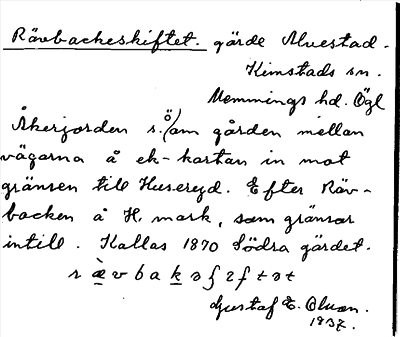 Rävbackeskiftet. gärde Alvestad.
Kimstads sn.
Memmings hd. Ögl
Åkerjorden s.ö/om gården mellan
vägarna å ek-kartan in mot
gränsen till Huseryd. Efter Räv-
backen å H. mark, som gränsar
intill. Kallas 1870 Södra gärdet.
r ä v b a k ə ʃ ɿ f t ə t
Gustaf E. Olsson.
1937.